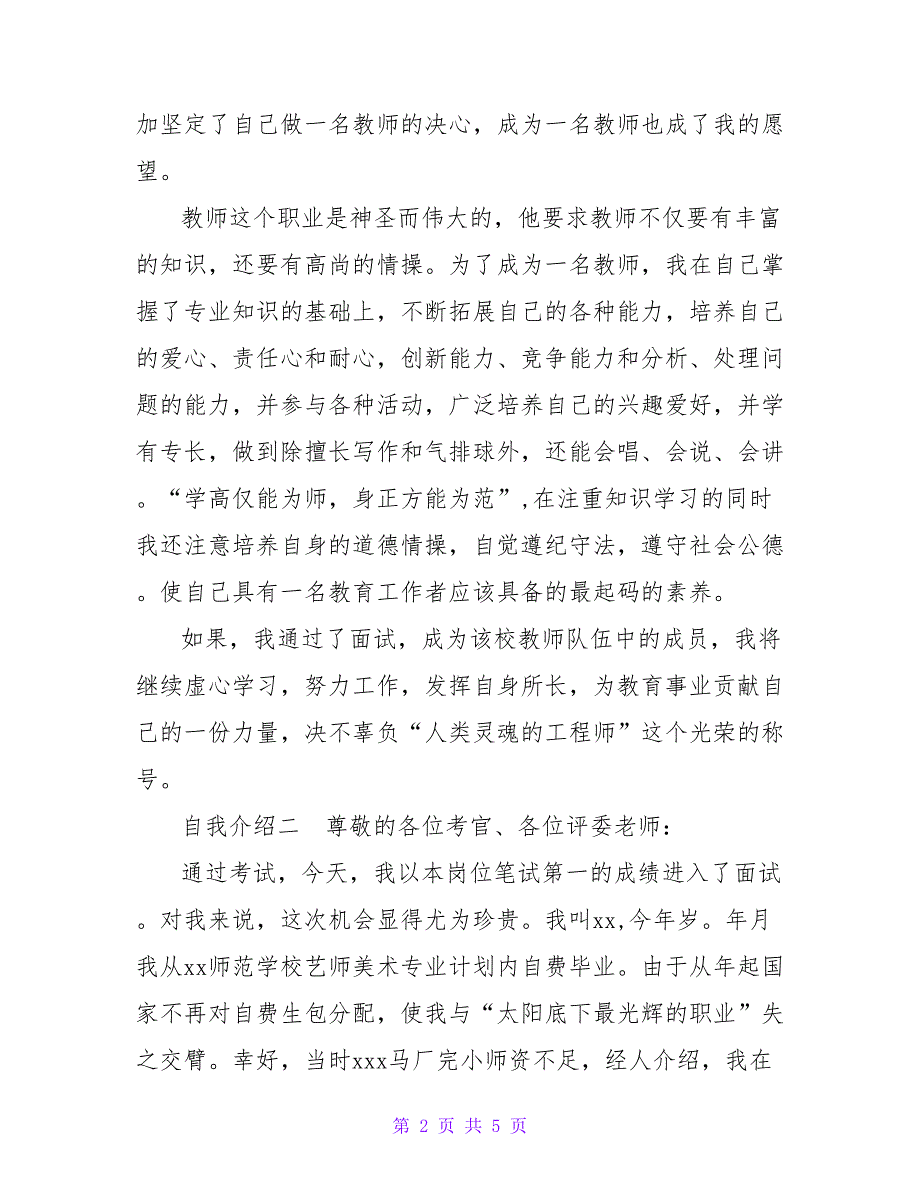 加坚定了自己做一名教师的决心，成为一名教师也成了我的愿
望。
教师这个职业是神圣而伟大的，他要求教师不仅要有丰富
的知识，还要有高尚的情操。为了成为一名教师，我在自己掌
握了专业知识的基础上，不断拓展自己的各种能力，培养自己
的爱心、责任心和耐心，创新能力、竞争能力和分析、处理问
题的能力，并参与各种活动，广泛培养自己的兴趣爱好，并学
有专长，做到除擅长写作和气排球外，还能会唱、会说、会讲
。“学高仅能为师，身正方能为范”,在注重知识学习的同时
我还注意培养自身的道德情操，自觉遵纪守法，遵守社会公德
。使自己具有一名教育工作者应该具备的最起码的素养。
如果，我通过了面试，成为该校教师队伍中的成员，我将
继续虚心学习，努力工作，发挥自身所长，为教育事业贡献自
己的一份力量，决不辜负“人类灵魂的工程师”这个光荣的称
号。
自我介绍二　尊敬的各位考官、各位评委老师：
通过考试，今天，我以本岗位笔试第一的成绩进入了面试
。对我来说，这次机会显得尤为珍贵。我叫xx,今年岁。年月
我从xx师范学校艺师美术专业计划内自费毕业。由于从年起国
家不再对自费生包分配，使我与“太阳底下最光辉的职业”失
之交臂。幸好，当时xxx马厂完小师资不足，经人介绍，我在
第 2 页 共 5 页